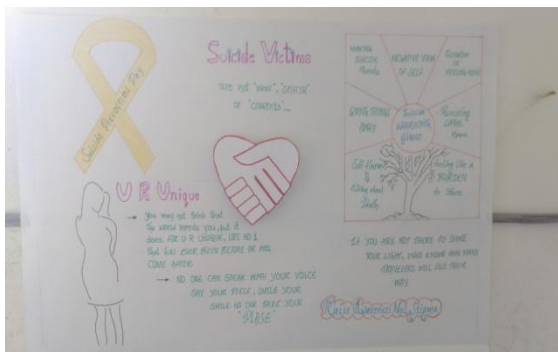 Suicide Prevention Day
Suicide Victims
are not "weak", "selfish"
or "cowards"...
U R Unique
→ You may not think that
The world needs you, but it
does. FOR U R UNIQUE, LIKE NO 1
that has ever been before or will
come after
→ NO ONE CAN SPEAK WITH YOUR VOICE
SAY YOUR PIECE, SMILE YOUR
SMILE NO ONE TAKE YOUR
"PLACE"
MAKING
SUICIDE
Threats
NEGATIVE VIEW
OF SELF
GIVING THINGS
AWAY
SUICIDE
WARNING
SIGNS
Self Harm
Talking about
Death
feeling like a
BURDEN
to Others
IF YOU ARE NOT THERE TO SHINE
YOUR LIGHT, WHO KNOWS HOW MANY
TRAVELLERS WILL LOSE THEIR
WAY
Raise Awareness Not Stigma